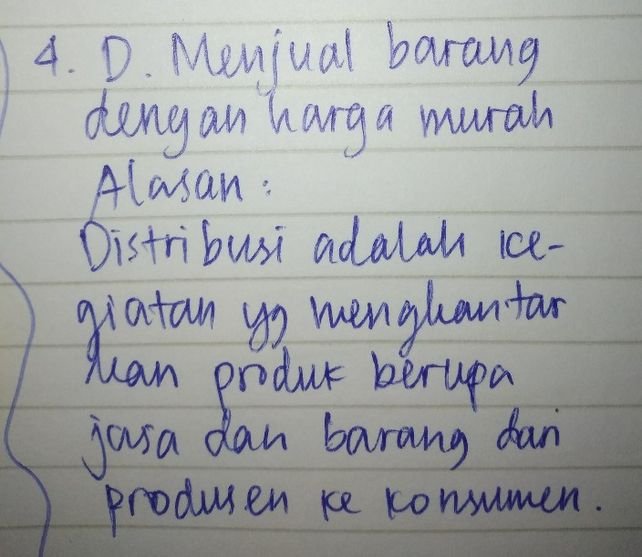 4. D. Menjual barang
dengan harga murah
Alasan :
Distribusi adalah ke-
giatan yg menghantar
kan produk berupa
jasa dan barang dari
produsen ke konsumen.